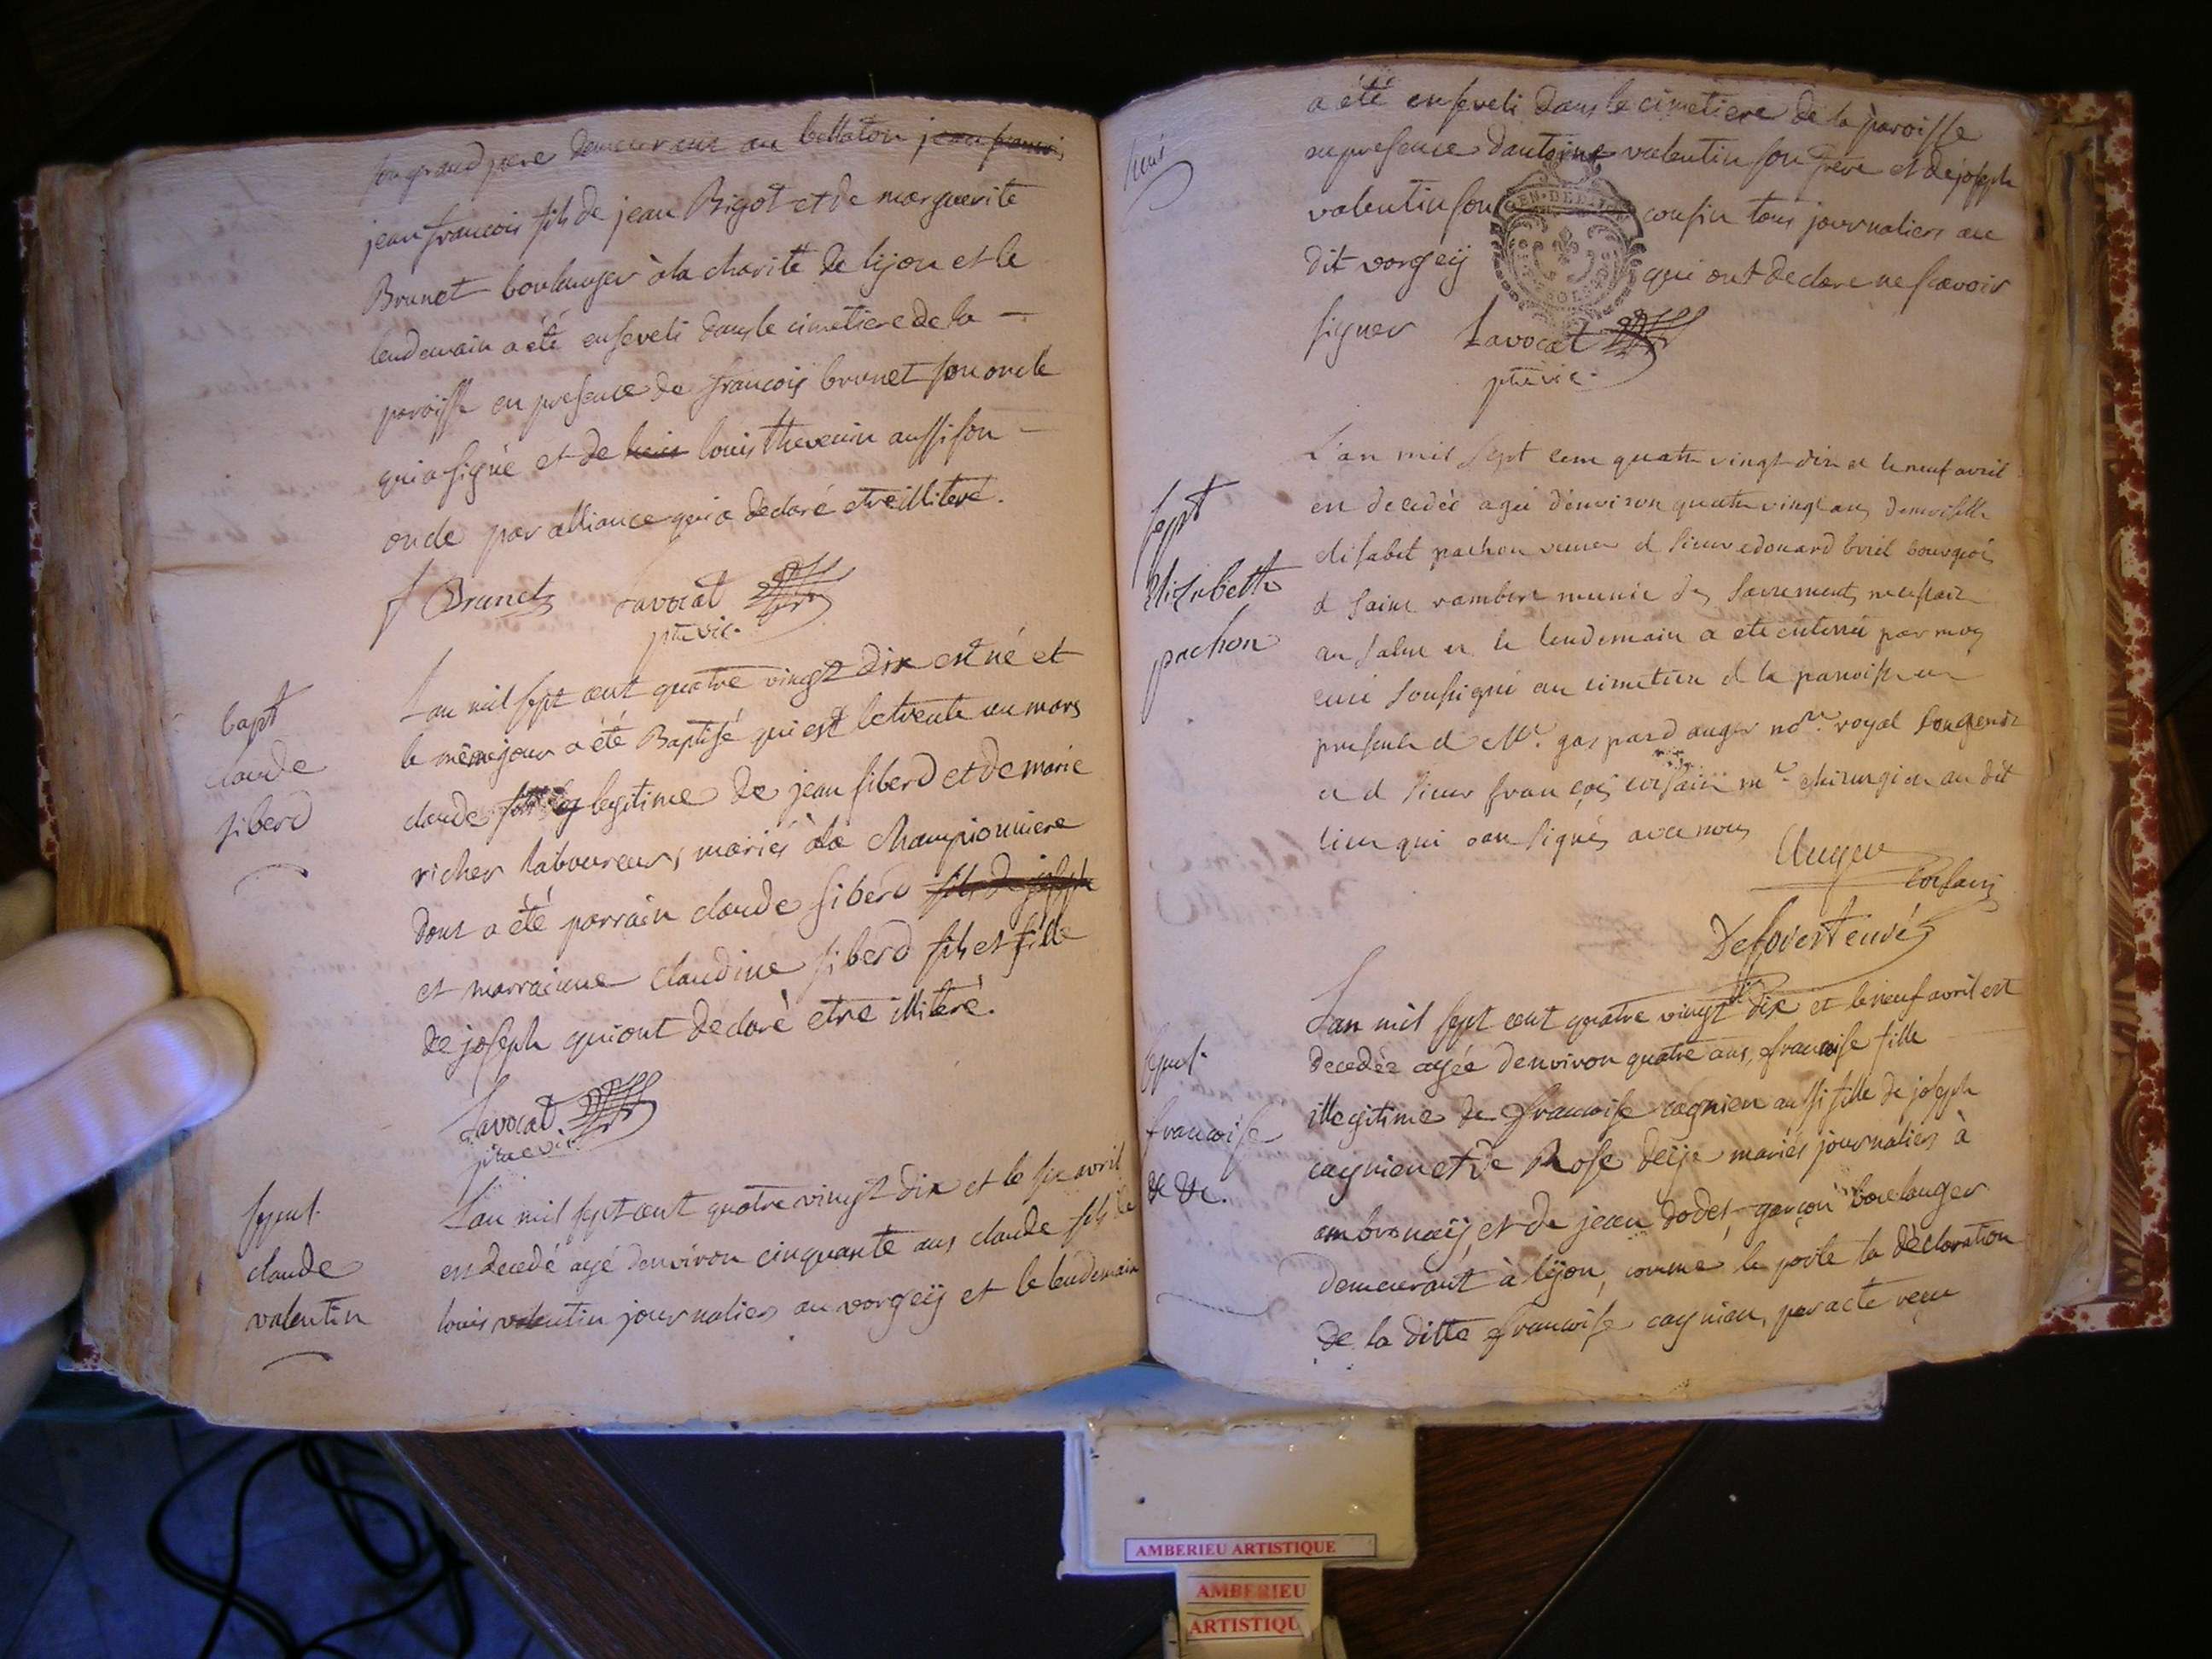 son grand pere demeurant au bellaton jean francoi
jean francois fils de jean Bigot et de marguerite
Brunet boulanger à la charité de lijon et le
lendemain a été enseveli dans le cimetiere de la
paroisse en presence de francois brunet son oncle
qui a signé et de louis thevenin aussi son
oncle par alliance qui a declaré etre illiteré.
f Brunet Lavocat
ptre vic.
bapt
claude
siberd
L'an mil sept cent quatre vingt dix est né et
le même jour a été Baptisé qui est le trente un mars
claude legitime de jean siberd et de marie
richer laboureurs, mariés à la championniere
dont a été parrain claude siberd fils de joseph
et marraine claudine siberd fils et fille
de joseph qui ont declaré etre illiteré.
Lavocat
ptre vic
sepul.
claude
valentin
L'an mil sept cent quatre vingt dix et le six avril
est decedé agé denviron cinquante ans claude fils de
louis valentin journalier au vorgeij et le lendemain
huit
a été enseveli dans le cimetiere de la paroisse
en presence dantoine valentin son frere et de joseph
valentin son cousin tous journaliers au
dit vorgeij qui ont declare ne scavoir
signer Lavocat
ptre vic.
GEN. DE
sept
Elizabeth
pachon
L'an mil sept cent quatre vingt dix et le neuf avril
est decedée agée d'environ quatre vingt ans demoiselle
elisabet pachon veuve de sieur edouard bourgeois
de saint rambert munie des sacrements necessaire
au salut et le lendemain a eté enterré par moy
curé soussigné au cimetiere de la paroisse en
presence de Mr. gaspard auger nore. royal son gendre
et de sieur françois me chirurgien au dit
lieu qui ont signés avec nous
Auger
Deforest curé
sepul.
francoise
de &c.
L'an mil sept cent quatre vingt dix et le neuf avril est
decedée agée denviron quatre ans, francoise fille
illegitime de francoise cagnien aussi fille de joseph
cagnien et de Rose mariés journaliers à
ambronaij, et de jean dodet garçon boulanger
demeurant à lijon, comme le porte la dèclaration
de la ditte francoise cagnien, par acte recu
AMBERIEU ARTISTIQUE
AMBERIEU
ARTISTIQU